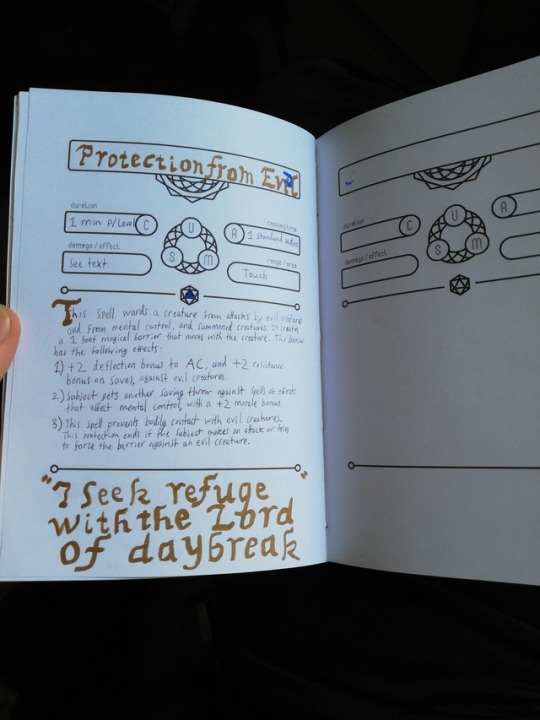 Protection from Evil
duration
1 min p/Level
C
U
S
M
A
casting time
1 standard action
damage/effect
See text.
range/area
Touch
This spell wards a creature from attacks by evil creatures
and from mental control, and summoned creatures. It creates
a 1 foot magical barrier that moves with the creature. The barrier
has the following effects:
1) +2 deflection bonus to AC, and +2 resistance
bonus on saves, against evil creatures.
2) Subject gets another saving throw against spells or effects
that affect mental control, with a +2 morale bonus
3) This spell prevents bodily contact with evil creatures.
This protection ends if the subject makes an attack or tries
to force the barrier against an evil creature.
"I Seek refuge
with the Lord
of daybreak"
duration
C
U
S
M
A
damage/effect